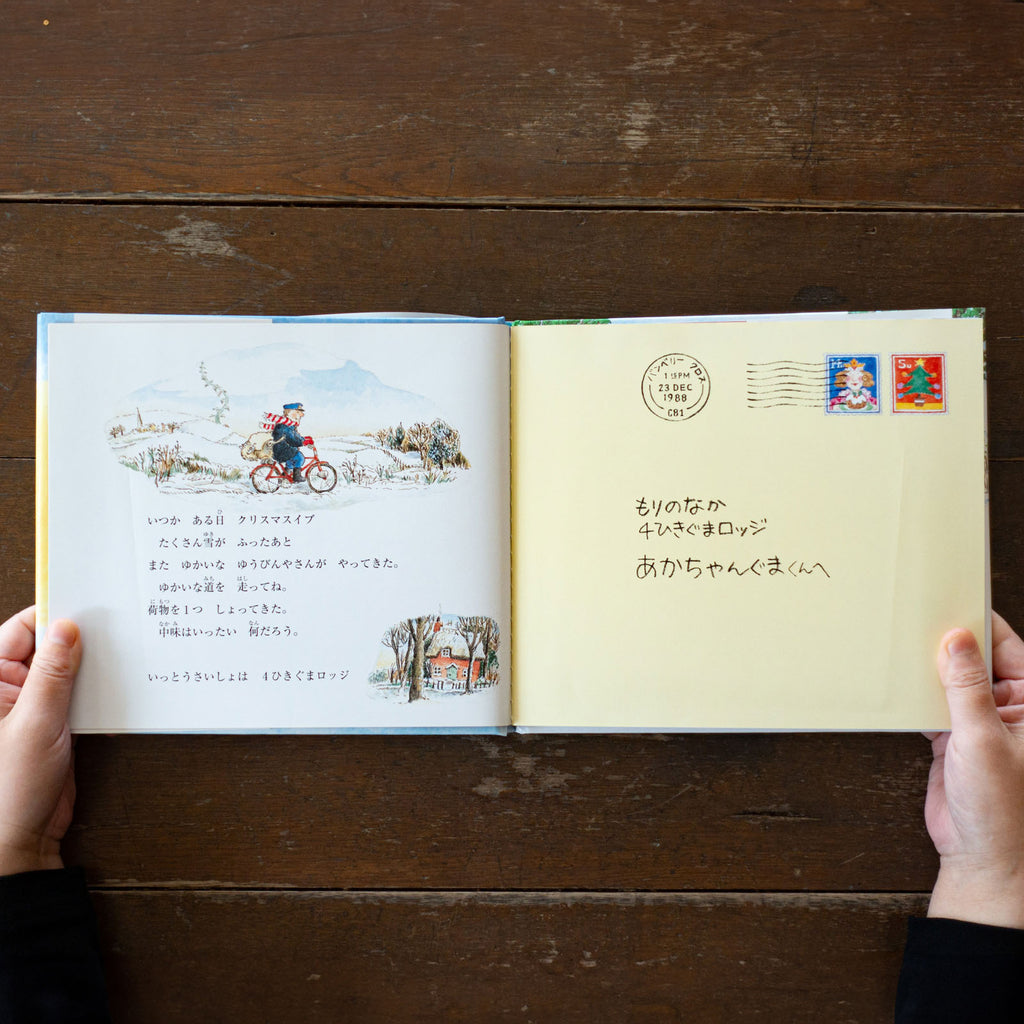 いつか ある日 クリスマスイブ
たくさん雪が ふったあと
また ゆかいな ゆうびんやさんが やってきた。
ゆかいな道を 走ってね。
荷物を1つ しょってきた。
中味はいったい 何だろう。
いっとうさいしょは 4ひきぐまロッジ
バンベリー クロス
1 15PM
23 DEC
1988
CB1
もりのなか
4ひきぐまロッジ
あかちゃんぐまくんへ